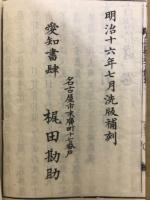 明治十六年七月洗版補刻
名古屋市末廣町十七番戸
愛知書肆 梶田勘助